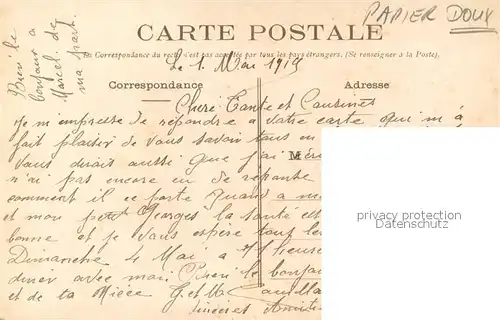 PAPIER DOUX
CARTE POSTALE
La Correspondance du recto n'est pas acceptée par tous les pays étrangers. (Se renseigner à la Poste).
Bien le
bonjour a
Marcel de
ma part.
Le 1. Mai 1919
Correspondance
Adresse
Cheri Tante et Cousines
Je m'empresse de repondre a votre carte qui m'a
fait plaisir de vous savoir tous en
vous dirait aussi que j'ai M
n'ai pas encore eu de reponse
comment il ce porte Quand a m
et mon petit Georges la santé est
bonne et je vous espère tout le
Dimanche 4 Mai a heures
diner avec moi Bien le bonjou
et de ta Nièce G et M
sincères Amiti
privacy protection
Datenschutz